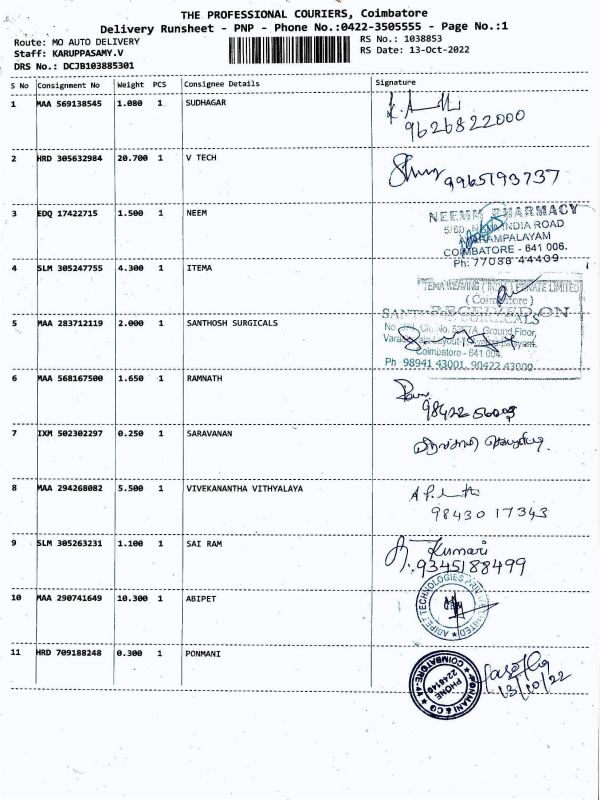 THE PROFESSIONAL COURIERS, Coimbatore
Delivery Runsheet - PNP - Phone No.:0422-3505555 - Page No.:1
Route: MO AUTO DELIVERY
RS No.: 1038853
Staff: KARUPPASAMY.V
RS Date: 13-Oct-2022
DRS No.: DCJB103885301
S No Consignment No Weight PCS Consignee Details Signature
1 MAA 569138545 1.080 1 SUDHAGAR
9626822000
2 HRD 305632984 20.700 1 V TECH
9965193737
3 EDQ 17422715 1.500 1 NEEM
NEEMM PHARMACY
INDIA ROAD
COIMBATORE - 641 006.
Ph: 77086 44409
4 SLM 305247755 4.300 1 ITEMA
ITEMA WEAVING (INDIA) PRIVATE LIMITED
(Coimbatore)
RECEIVED ON
5 MAA 283712119 2.000 1 SANTHOSH SURGICALS
SANTHOSH SURGICALS
Ground Floor,
Coimbatore - 641 004.
Ph 98941 43001, 90422 43000
6 MAA 568167500 1.650 1 RAMNATH
7 IXM 502302297 0.250 1 SARAVANAN
8 MAA 294268082 5.500 1 VIVEKANANTHA VITHYALAYA
98430 17343
9 SLM 305263231 1.100 1 SAI RAM
Kumari
9345188499
10 MAA 290741649 10.300 1 ABIPET
TECHNOLOGIES
11 HRD 709188248 0.300 1 PONMANI
PONMANI & CO
COIMBATORE-44
PHONE
2246140
13/10/22